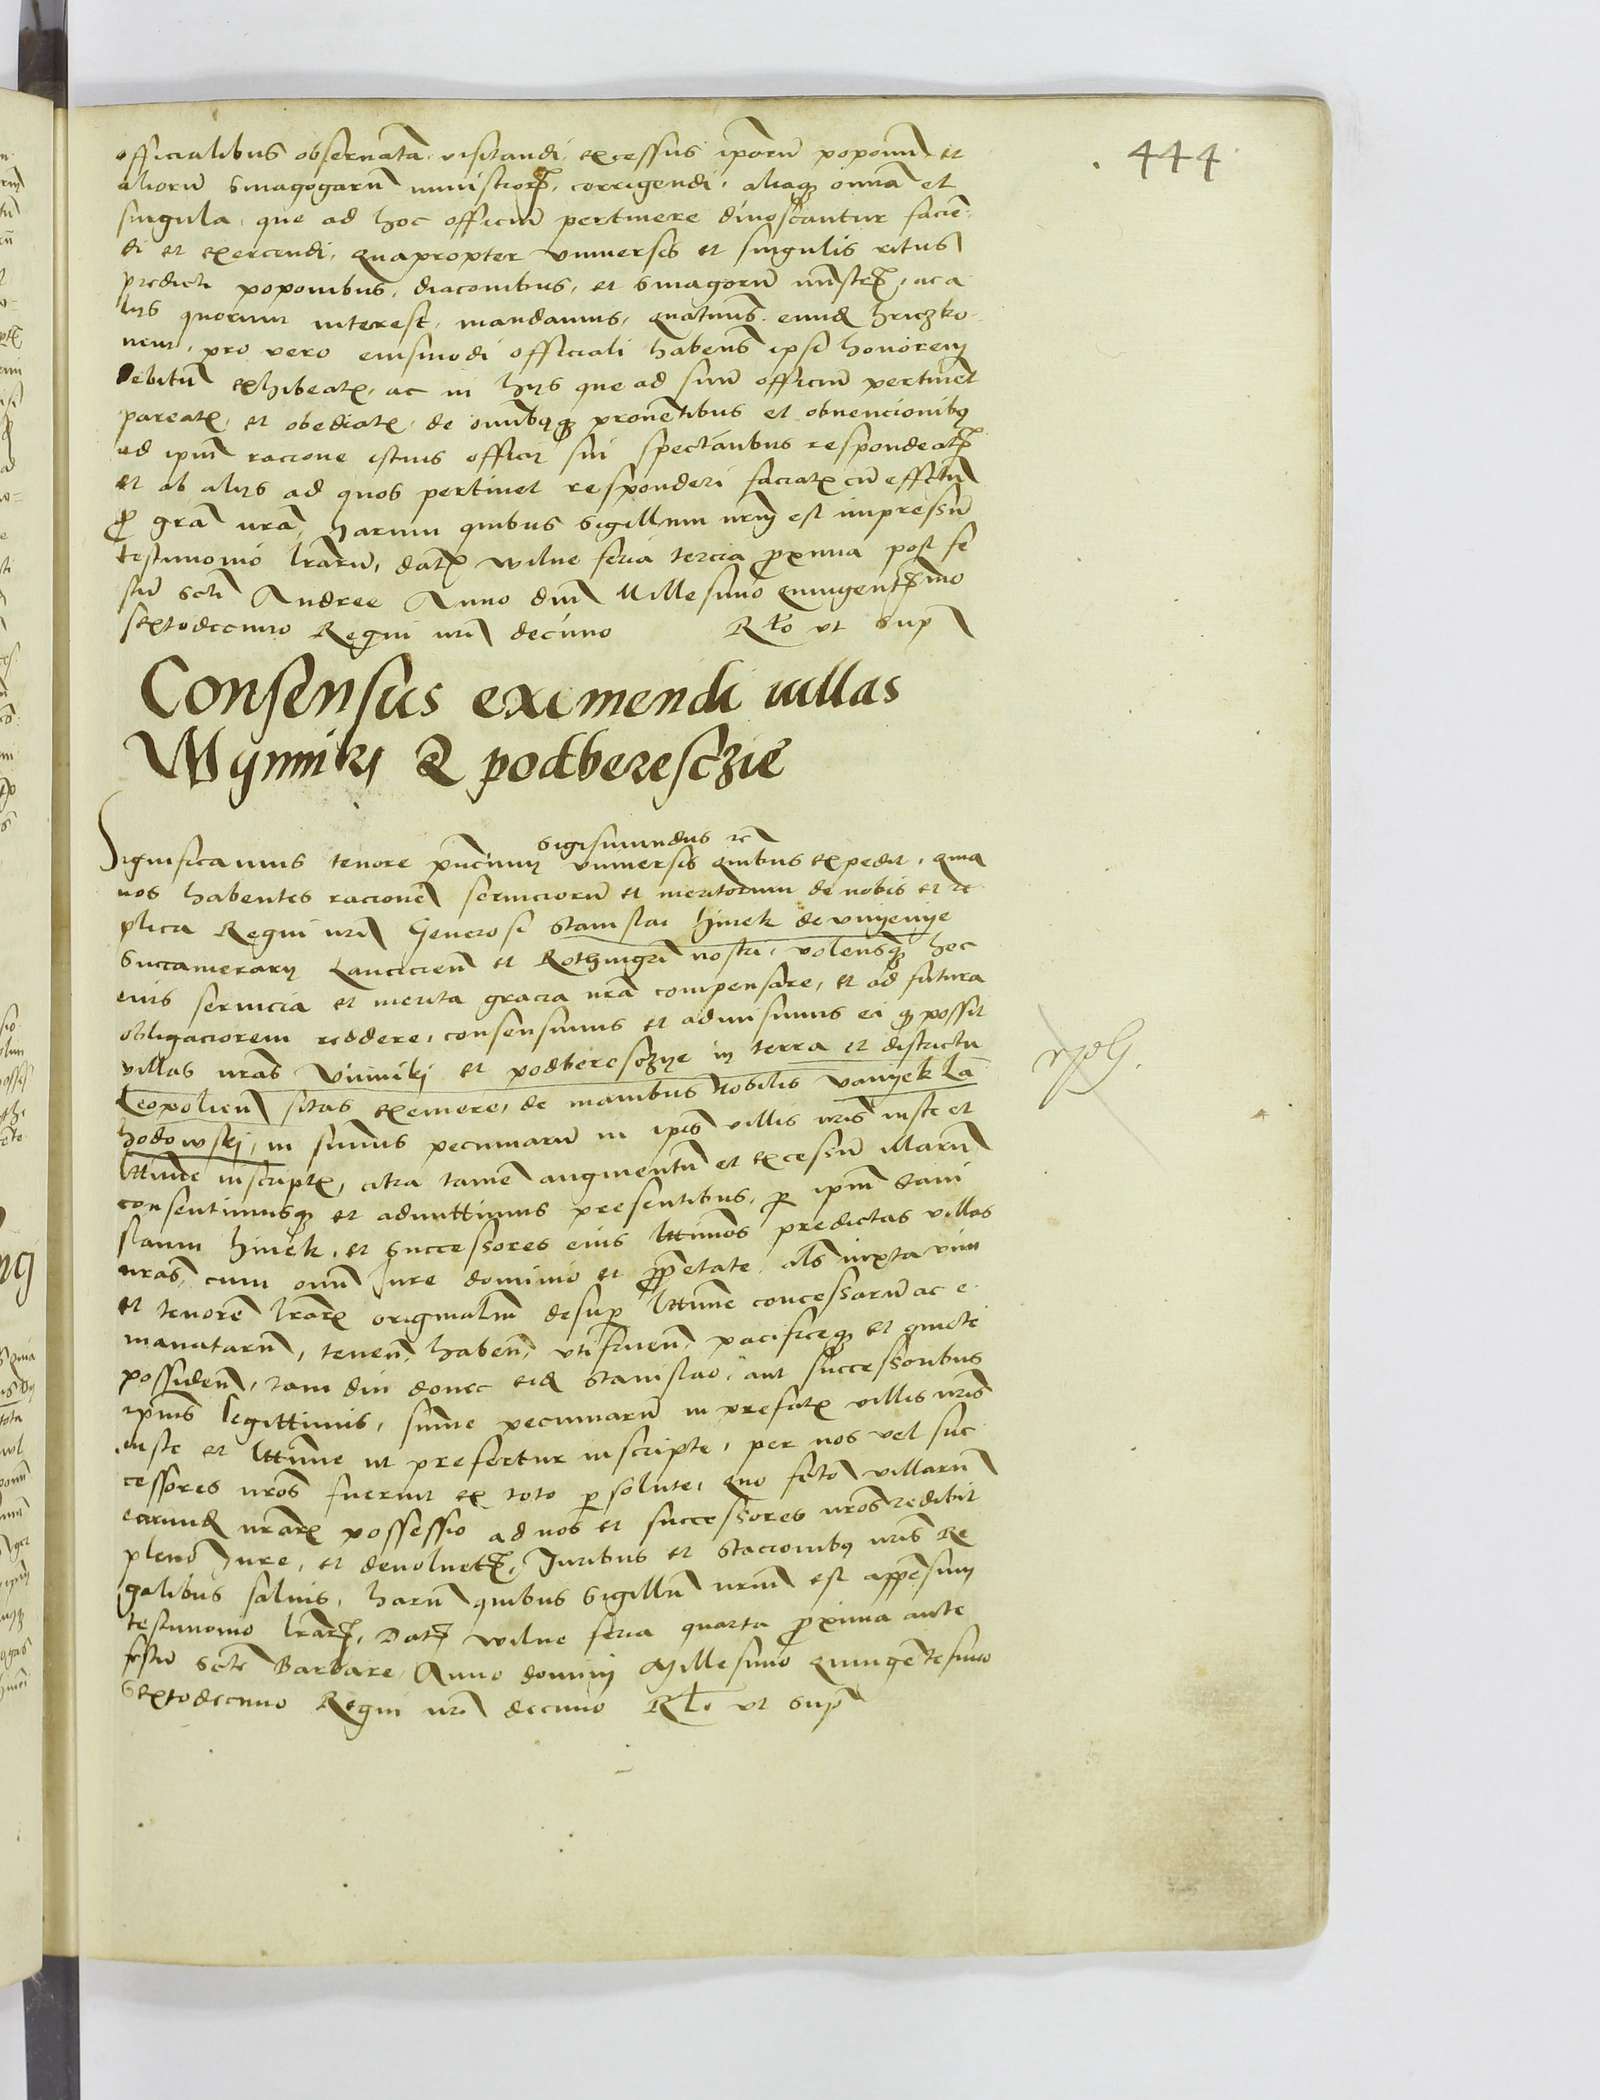 444
officialibus obseruata. visitandi, excessus iporu poponu et
alioru sinagogaru ministrorz, corrigendi, aliaqz omnia et
singula, que ad hoc officiu pertinere dinoscantur facie-
di et exercendi, quapropter vniuersis et singulis ritus
predicti poponibus, diaconibus, et sinagoru minstrz, ac a
lijs quorum interest, mandamus, quatinus eund hriczko-
nem, pro vero eiusmodi officiali habens ipsi honorem
debitu exhibeatz, ac in hijs que ad suu officiu pertinet
pareatz, et obediatz, de omibqz prouetibus et obuencionibq
ad ipm racione istius officij sui spectatibus respondeatz
et ab alijs ad quos pertinet responderi faciatz cu effectu
p gra nra, harum quibus sigillum nrm est impressu
testimonio lraru, datz wilne feria tercia pxima post fe
stu scti Andree Anno dni Millesimo quingentzimo
sextodecimo Regni nri decimo Rlo ut sup
Consensus eximendi uillas
Wynniki & podberesczie
Sigismundus rc
Significamus tenore pncium vniuersis quibus expedit, quia
nos habentes racione seruicioru et meritorum de nobis et re
plica Regni nri Generosi Stanislai hinek de vnyenye
Succamerarij Lanciciens et Rothmgri nostri, volensqz hec
eius seruicia et merita gracia nra compensare, et ad futura
obligaciorem reddere, consensimus et admisimus ei qz possit
villas nras Vinniki et podberesczye in terra et districtu
Leopolien sitas exemere, de manibus Nobilis vanyek La
hodowski, in sumis pecuniaru in ipis villis nris iuste et
lttime inscriptz, citra tame augmentu et excessu illaru
consentimusqz et admittimus presentibus, p ipm Stani
slaum hinek, et successores eius lttimos predictas villas
nras, cum omi Iure dominio et ppetate als iuxta vim
et tenore lrarz originaliu desup lttime concessaru ac e
manataru, tenen, haben, vtifruen, pacificeqz et quiete
possiden, tam diu donec eid Stanislao, aut successoribus
ipius legittimis, sume pecuniaru in prefatz villis nris
iuste et lttime ut prefertur inscripte, per nos vel suc
cessores nros fuerint ex toto psolute, quo facto villaru
earund nrarz possessio ad nos et successores nros redibit
pleno Iure, et deuoluetz, Iuribus et stacionibq nris Re
galibus saluis, haru quibus Sigillu nrm est appesum
testimonio lrarz, Datz wilne feria quarta pxima ante
festu scte Barbare, Anno domini Millesimo quingetesimo
Sextodecimo Regni nri decimo Rlo ut sup